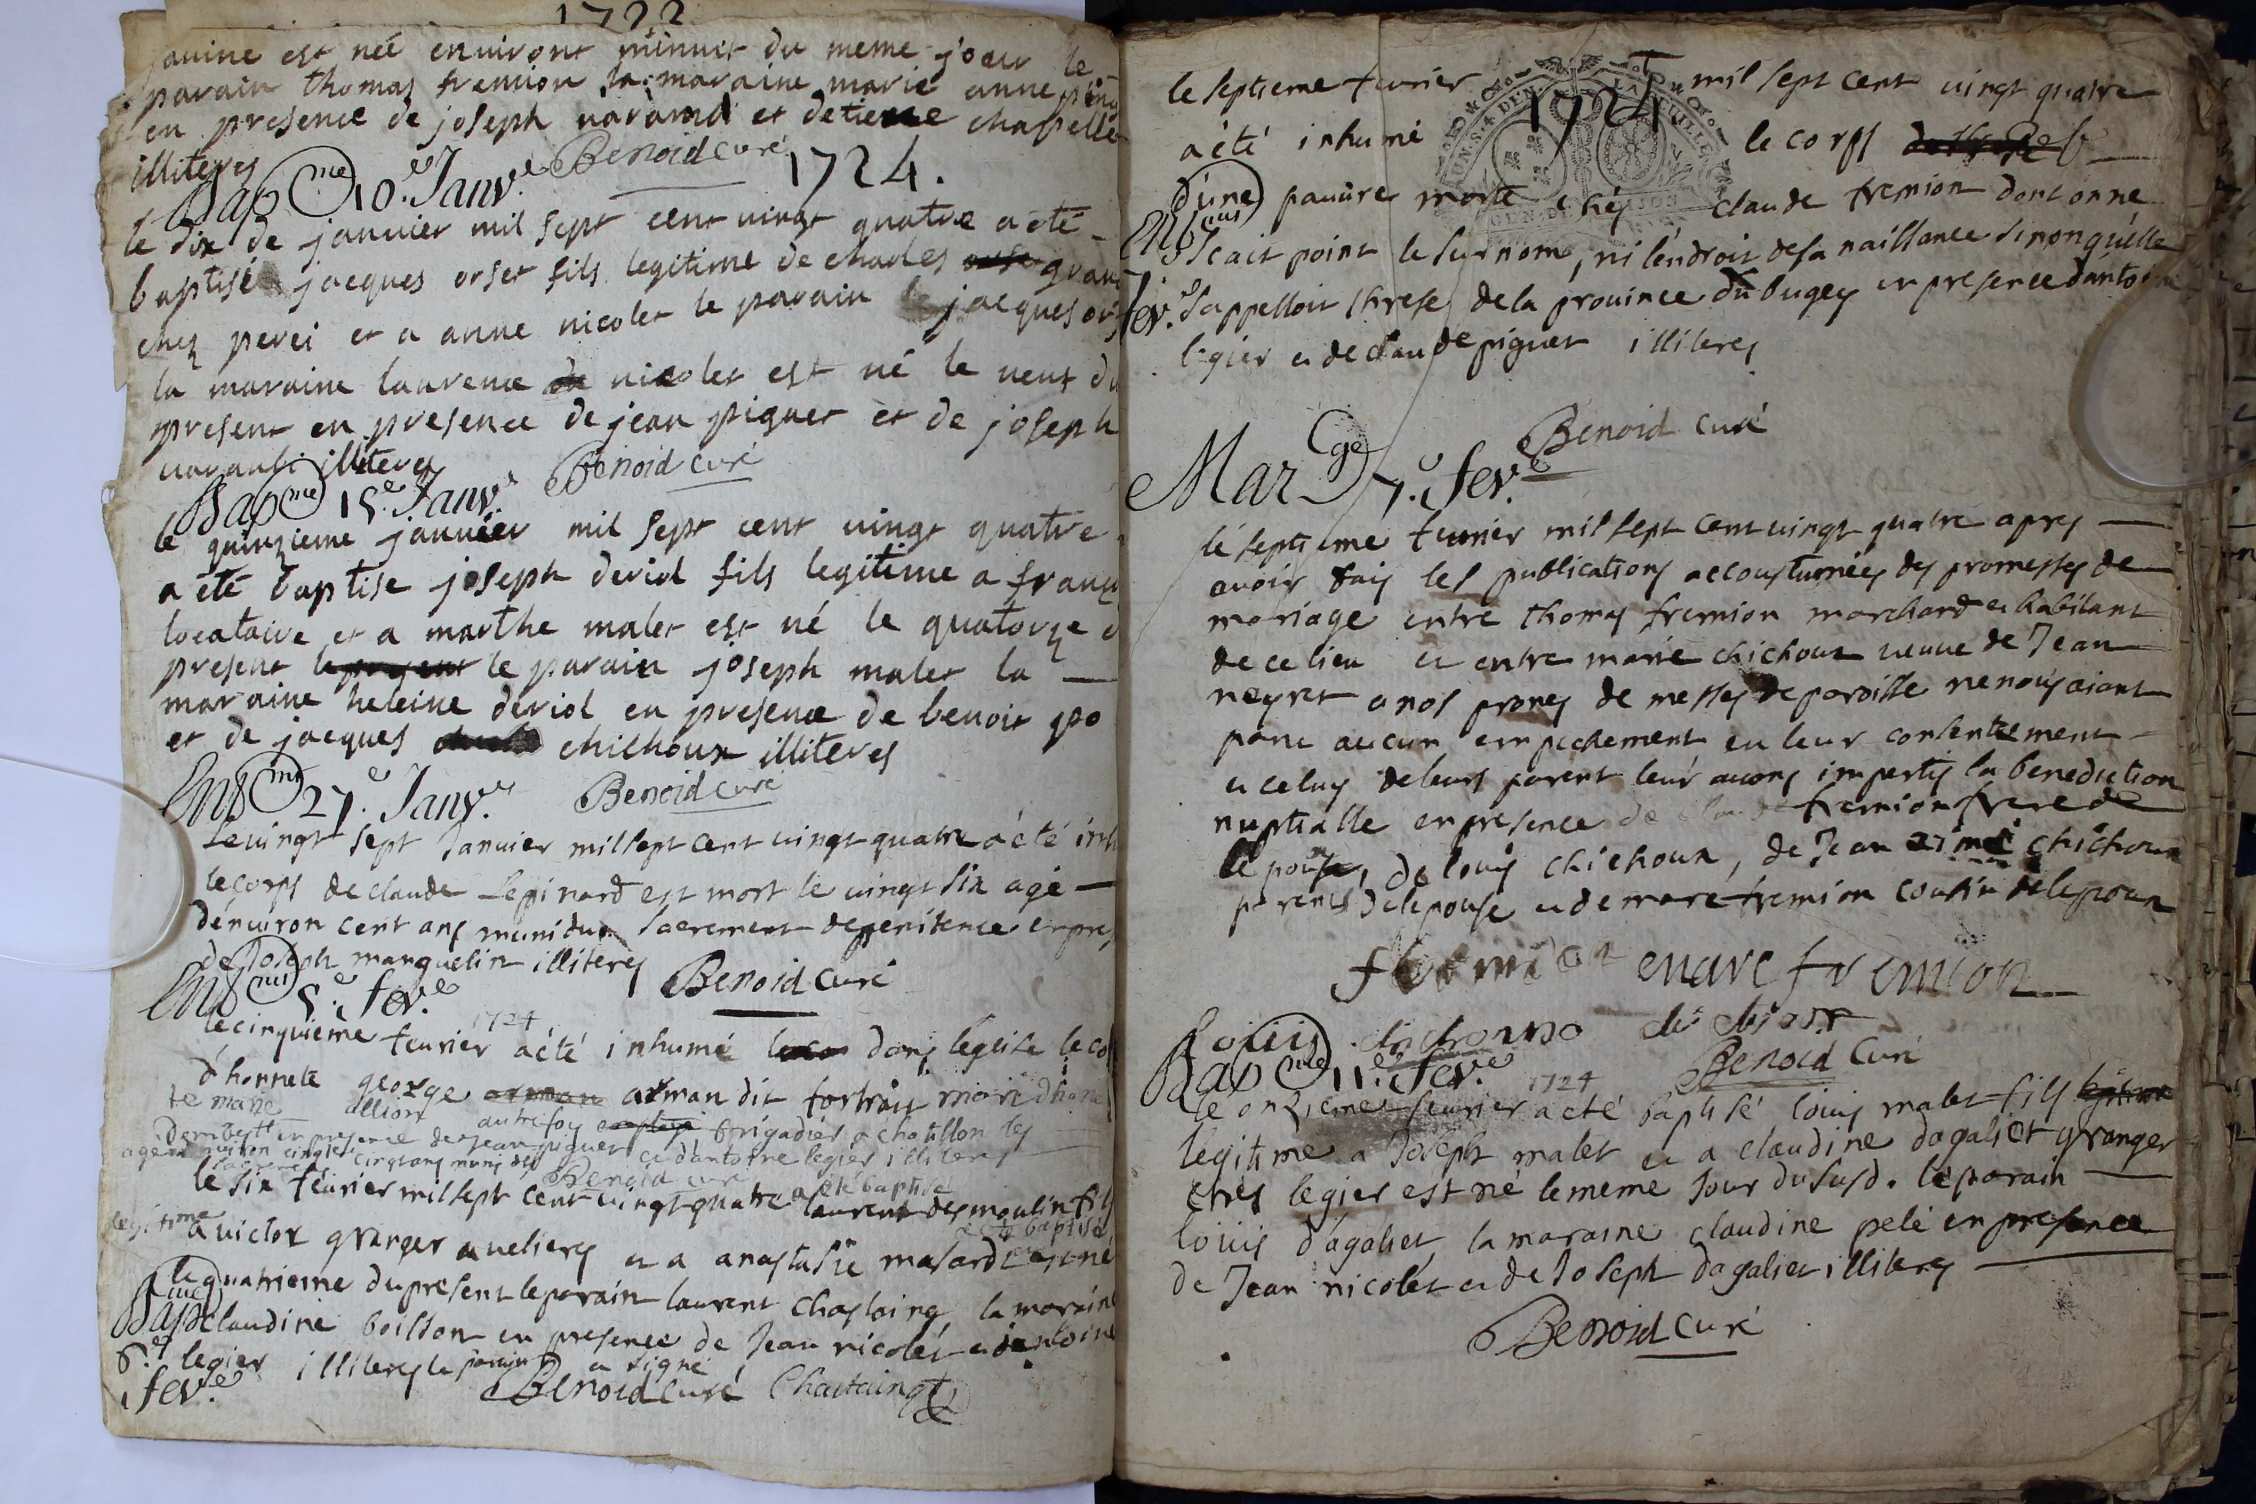 1722
javine est neé environt minuit du meme jour le
parain thomas fremion la maraine marie anne
en presence de joseph navarind et detiene chapelle
illiteres
Benoid curé
1724.
Bapme 10.e Janv.e
le dix de janvier mil sept cent vingt quatre a été
baptisé jacques orset fils legitime de charles gran
chez perei et a anne nicolet le parain jacques ors
la maraine laurence nicolet est né le neuf du
present en presence de jean piguet et de joseph
illiteres
Benoid curé
Bapme 15.e Janv.e
le quinzieme janvier mil sept cent vingt quatre
a été baptise joseph deriol fils legitime a franç
locataire et a marthe malet est né le quatorze
present le present le parain joseph malet la
maraine heleine deriol en presence de benoit po
et de jacques chichoux illiteres
Benoid curé
Ent.me 27.e Janv.er
Le vingt sept Janvier mil sept cent vingt quatre a été inh
le corps de claude Lepinard est mort le vingt six agé
dénviron cent ans muni du Sacrement de penitence en pre
de Joseph manguelin illiteres
Benoid curé
5.e fev.e
1724
le cinquieme fevrier a été inhumé dans léglise le co
d'honnete george arman dit fortrait mari dhone
te marie allion autrefoy brigadier a chatillon les
en presence de Jean piguet et dantoine legier illiteres
cinq ans muny des
Benoid curé
le six fevrier mil sept cent vingt quatre a été baptisé laurent desmoulin fils
legitime a victor granger a veliere et a anastasie masard est né
a été baptisé
le quatrieme du present le parain laurent chastaing, la maraine
Bapme claudine boisson en presence de Jean nicolet et dantoine
6.e legier illiteres le parain a signé
fev.e Benoid curé Chastaing
le septieme fevrier mil sept cent vingt quatre
1724
a été inhumé le corps
d'une pauvre morte chés claude fremion dont on ne
Scait point le surnom, ni léndroit de sa naissance sinon quélle
fev.e s'appelloit threse de la province du bugey en presence dantoine
legier et de claude piguet illiteres
Benoid curé
Mar.ge 7.e fev.e
le septieme fevrier mil sept cent vingt quatre apres
avoir fais les publications accoustumées des promesses de
mariage entre thomas fremion marchand et habitant
de ce lieu et entre marie chichoux veuve de Jean
neyret a nos prones de messes de paroisse ne nous aiant
paru aucun empechement eu leur consentement
et celuy de leurs parent leur avons impartis la benediction
nuptialle en presence de fremion frere de
lepoux, de louis chichoux, de Jean chichoux
parents de lepouse et de marc fremion cousin de lepoux
fremion marc fremion
Louis
Benoid curé
Bapme 11.e fev.e
1724
le onzieme fevrier a été baptisé louis malet fils legitime
legitime a Joseph malet et a claudine dagaliet granger
chés legier est né le meme Jour du susd. le parain
louis dagaliet, la maraine claudine pelé en presence
de Jean nicolet et de Joseph dagaliet illiteres
Benoid curé